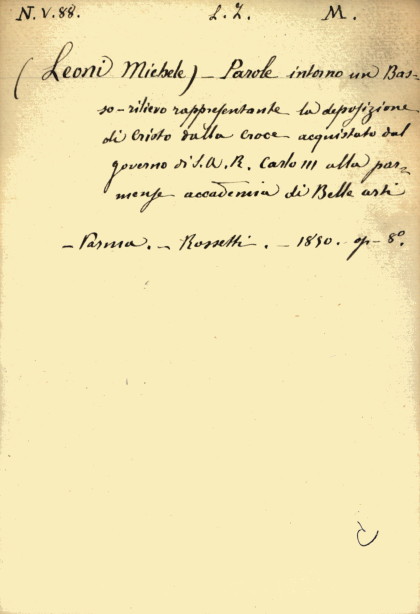 N. V. 88. L. Z. M.
(Leoni Michele) — Parole intorno un Bas=
so-rilievo rappresentante la deposizione
di Cristo dalla Croce acquistato dal
governo di S. A. R. Carlo III alla par=
mense accademia di Belle arti
— Parma. — Rossetti. — 1850. op- 8°.